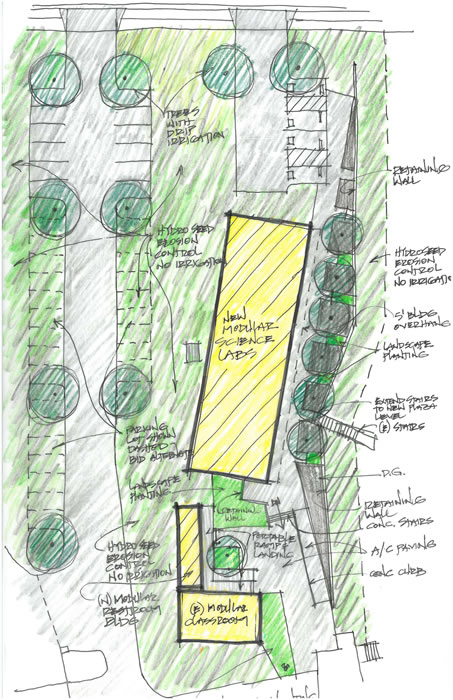 TREES
WITH
DRIP
IRRIGATION
RETAINING
WALL
HYDROSEED
EROSION
CONTROL
NO IRRIGATION
HYDROSEED
EROSION
CONTROL
NO IRRIGATION
5' BLDG
OVERHANG
LANDSCAPE
PLANTING
NEW
MODULAR
SCIENCE
LABS
EXTEND STAIRS
TO NEW PLAZA
LEVEL
(E) STAIRS
PARKING
LOT SHOWN
DASHED -
BID ALTERNATE
D.G.
LANDSCAPE
PLANTING
RETAINING
WALL
CONC. STAIRS
RETAINING
WALL
PORTABLE
RAMP
LANDING
A/C PAVING
HYDROSEED
EROSION
CONTROL
NO IRRIGATION
CONC CURB
(N) MODULAR
RESTROOM
BLDG
(E) MODULAR
CLASSROOM